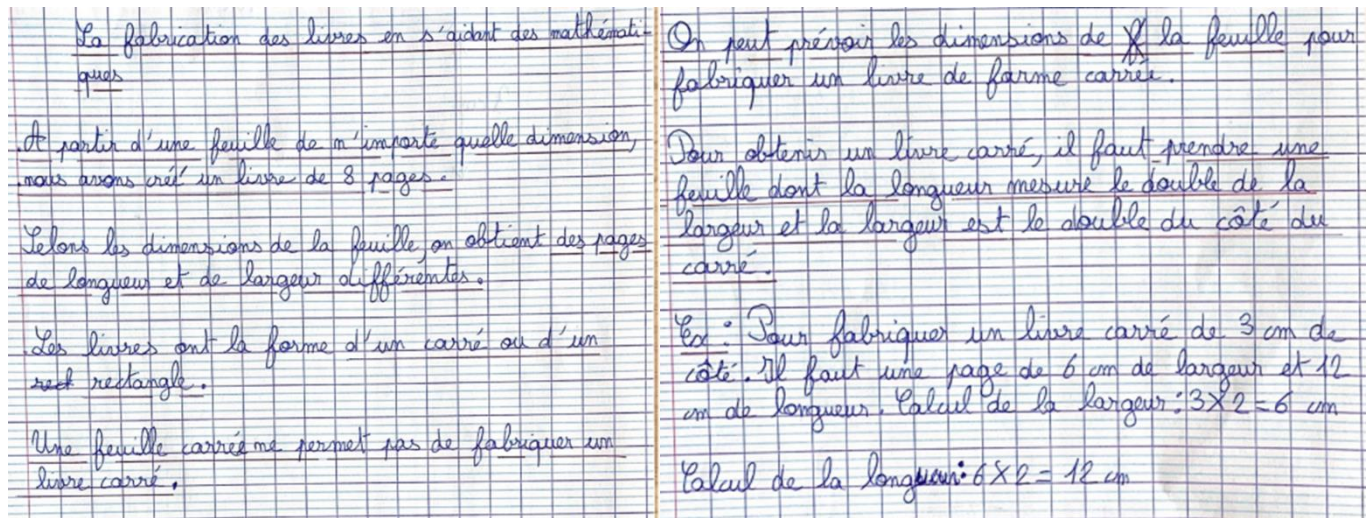 La fabrication des livres en s'aidant des mathémati-
ques
A partir d'une feuille de n'importe quelle dimension,
nous avons créé un livre de 8 pages.
Selons les dimensions de la feuille, on obtient des pages
de longueur et de largeur différentes.
Les livres ont la forme d'un carré ou d'un
rect rectangle.
Une feuille carrée ne permet pas de fabriquer un
livre carré.
On peut prévoir les dimensions de la feuille pour
fabriquer un livre de forme carrée.
Pour obtenir un livre carré, il faut prendre une
feuille dont la longueur mesure le double de la
largeur et la largeur est le double du côté du
carré.
Ex : Pour fabriquer un livre carré de 3 cm de
côté. Il faut une page de 6 cm de largeur et 12
cm de longueur. Calcul de la largeur : 3 X 2 = 6 cm
Calcul de la longueur : 6 X 2 = 12 cm